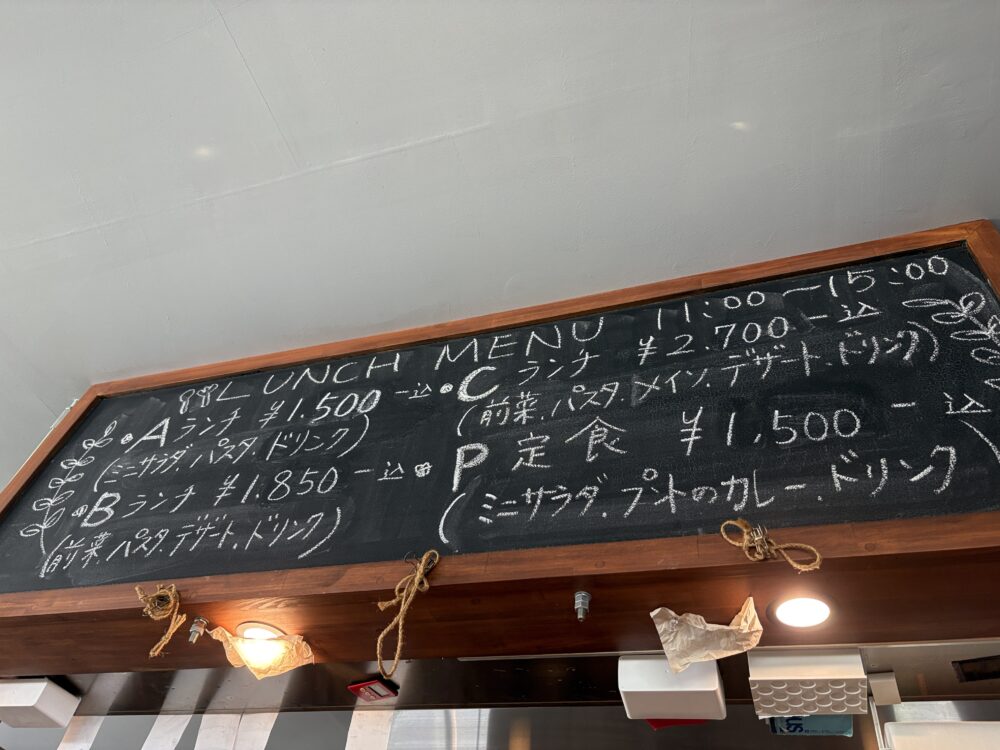 LUNCH MENU 11:00〜15:00
Aランチ ¥1.500-込
(ミニサラダ.パスタ.ドリンク)
Bランチ ¥1.850-込
(前菜.パスタ.デザート.ドリンク)
Cランチ ¥2.700-込
(前菜.パスタ.メイン.デザート.ドリンク)
P定食 ¥1,500-込
(ミニサラダ.プントのカレー.ドリンク)